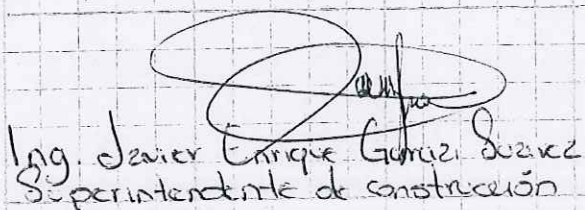 Ing. Javier Enrique Gamuzi Suzivez
Superintendente de construcción